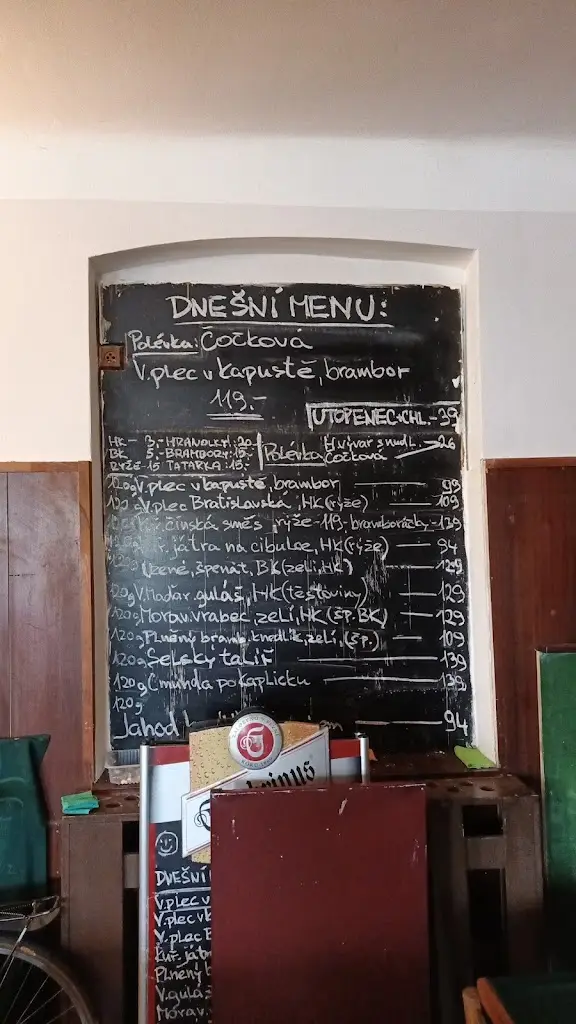 DNEŠNÍ MENU:
Polévka: Čočková
V. plec v kapustě, brambor
119.-
UTOPENEC+CHL.-39
HK- 3,- HRANOLKY: 20.-
BK 5.- BRAMBORY: 15.-
RÝŽE-15 TATARKA: 15.-
Polévka H. vývar s nudl. 26
Čočková
120g V. plec v kapustě, brambor 99
120g V. plec Bratislavská, HK (rýže) 109
čínská směs rýže-113,- 139
játra na cibulce, HK (rýže) 94
Uzené, špenát, BK (zelí, HK) 129
120g V. Maďar. guláš, HK (těstoviny) 129
120g Morav. vrabec, zelí, HK (šp. BK) 129
120g Plněný bramb. knedlík, zelí, (šp.) 109
120g Selský talíř 139
120g Čmunda po kaplicku 139
120g
Jahod 94
DNEŠNÍ
V. plec v
V. plec v k
V. plec B
Kuř. játr
Plněný b
V. gulá
Morav.